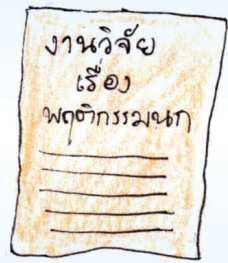 งานวิจัย
เรื่อง
พฤติกรรมนก